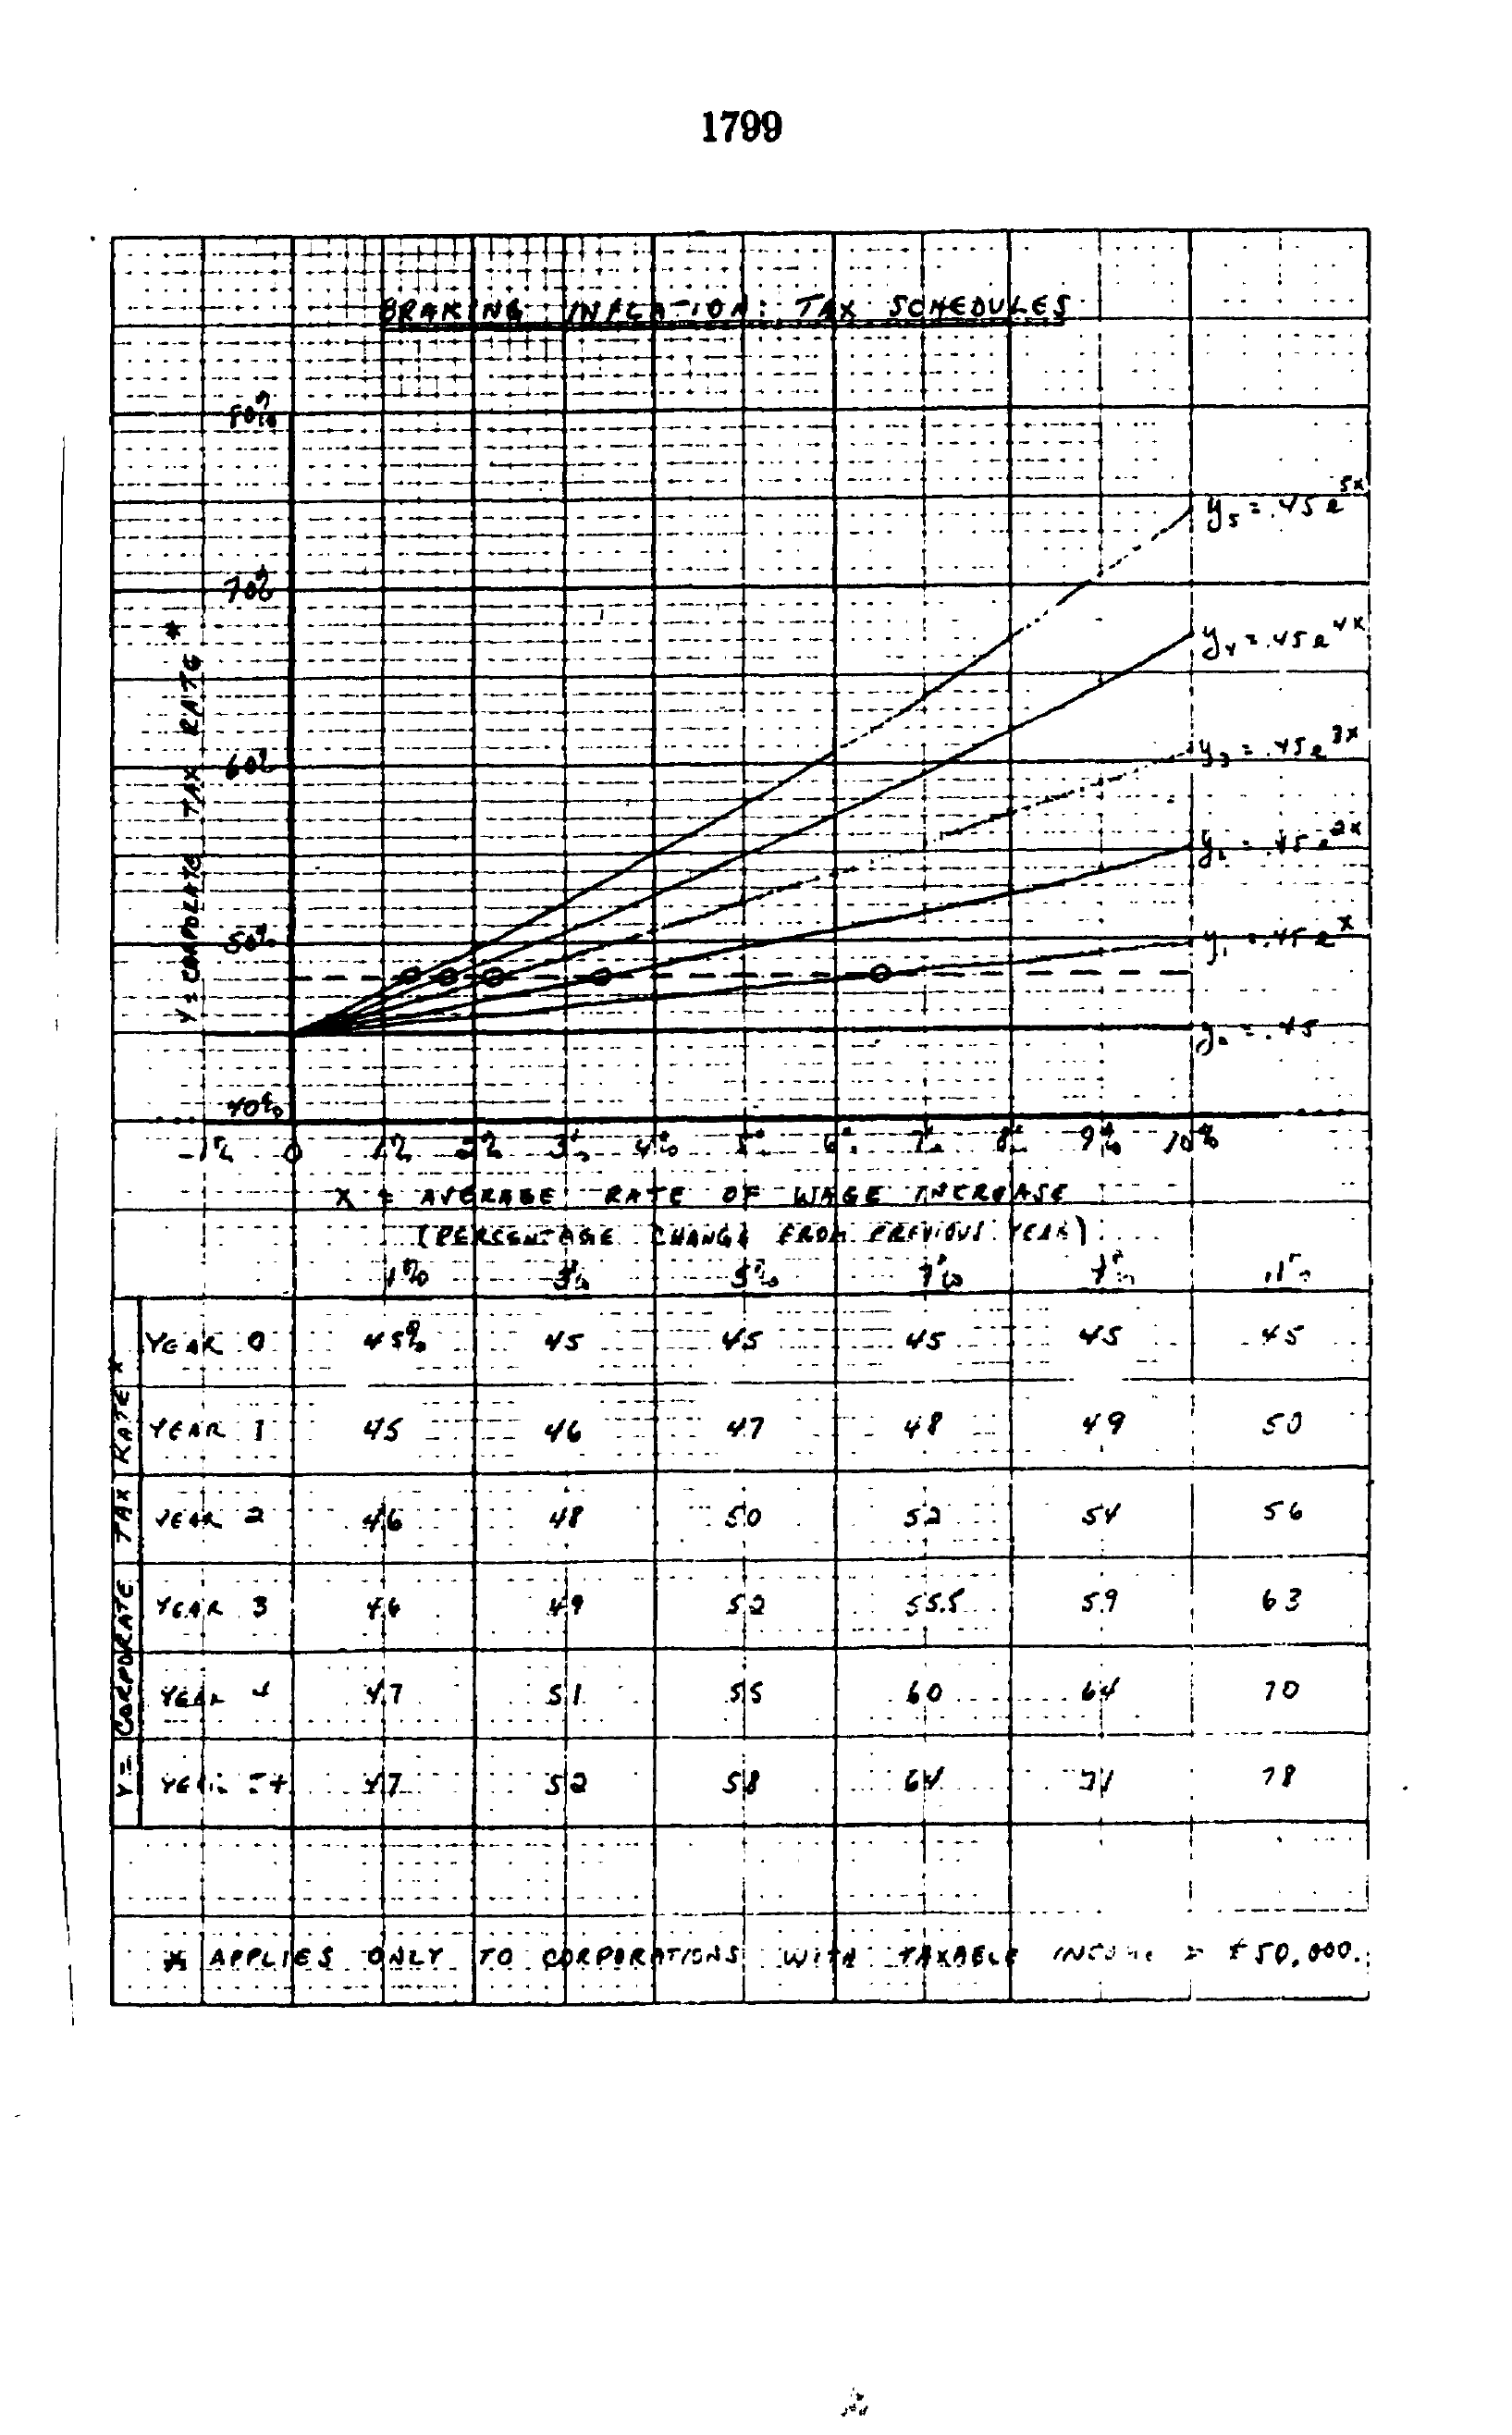 1799
BRAKING INFLATION: TAX SCHEDULES
80%
y5 = .45e^5x
70%
y4 = .45e^4x
60%
y3 = .45e^3x
y2 = .45e^2x
50%
y1 = .45e^x
y0 = .45
40%
Y = CORPORATE TAX RATE *
-1% 0 1% 2% 3% 4% 5% 6% 7% 8% 9% 10%
X = AVERAGE RATE OF WAGE INCREASE
(PERCENTAGE CHANGE FROM PREVIOUS YEAR)
1% 3% 5% 7% 11%
Y = CORPORATE TAX RATE *
YEAR 0 45% 45 45 45 45 45
YEAR 1 45 46 47 48 49 50
YEAR 2 46 48 50 52 54 56
YEAR 3 46 49 52 55.5 59 63
YEAR 4 47 51 55 60 64 70
YEAR 5+ 47 52 58 64 71 78
* APPLIES ONLY TO CORPORATIONS WITH TAXABLE INCOME > $50,000.